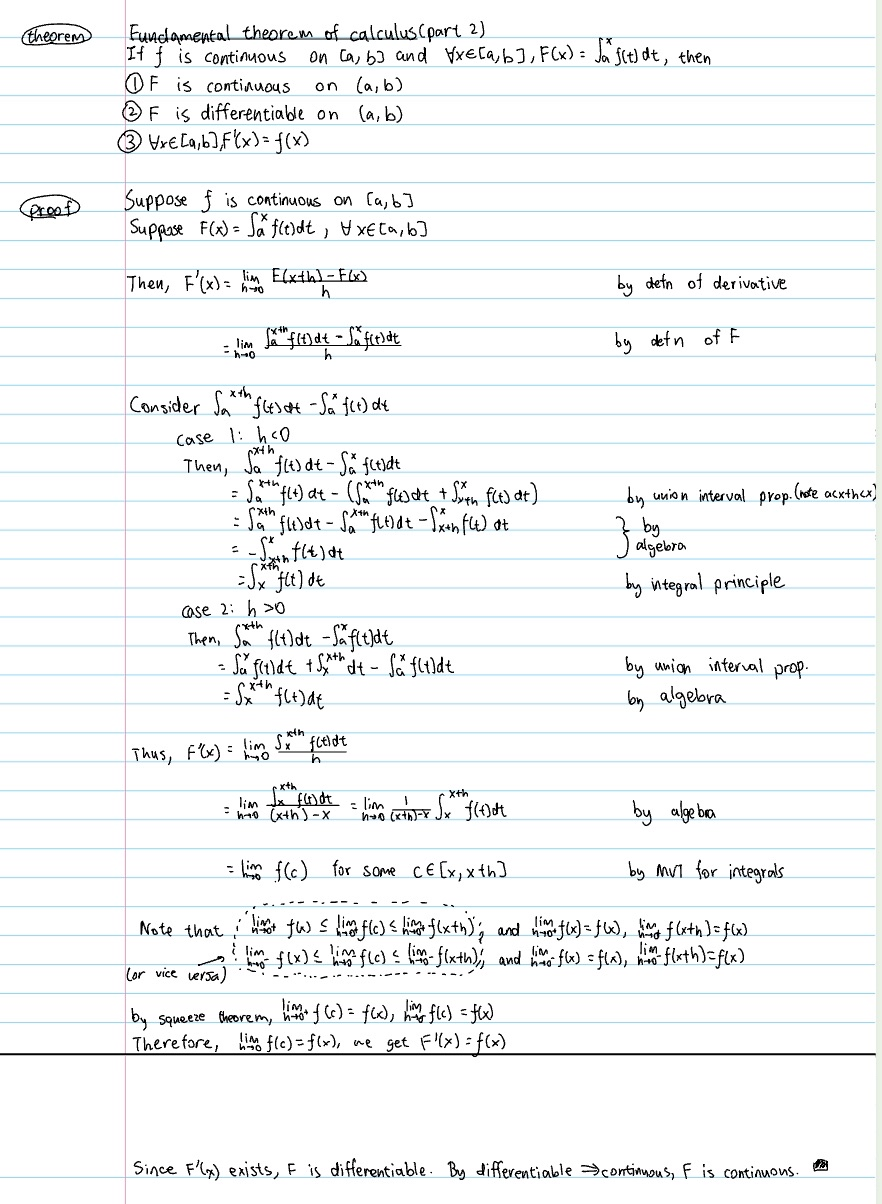 theorem Fundamental theorem of calculus (part 2)
If f is continuous on [a, b] and ∀x∈[a, b], F(x) = ∫ₐˣ f(t) dt, then
① F is continuous on (a, b)
② F is differentiable on (a, b)
③ ∀x∈[a,b], F'(x) = f(x)
proof Suppose f is continuous on [a, b]
Suppose F(x) = ∫ₐˣ f(t)dt, ∀ x∈[a, b]
Then, F'(x) = lim_{h→0} (F(x+h) - F(x))/h by defn of derivative
= lim_{h→0} (∫ₐ^{x+h} f(t) dt - ∫ₐˣ f(t)dt)/h by defn of F
Consider ∫ₐ^{x+h} f(t) dt - ∫ₐˣ f(t) dt
case 1: h<0
Then, ∫ₐ^{x+h} f(t) dt - ∫ₐˣ f(t)dt
= ∫ₐ^{x+h} f(t) dt - (∫ₐ^{x+h} f(t) dt + ∫_{x+h}^x f(t) dt) by union interval prop. (note a<x+h<x)
= ∫ₐ^{x+h} f(t)dt - ∫ₐ^{x+h} f(t)dt - ∫_{x+h}^x f(t) dt } by
= -∫_{x+h}^x f(t) dt algebra
= ∫ₓ^{x+h} f(t) dt by integral principle
case 2: h >0
Then, ∫ₐ^{x+h} f(t)dt - ∫ₐˣ f(t)dt
= ∫ₐˣ f(t)dt + ∫ₓ^{x+h} dt - ∫ₐˣ f(t)dt by union interval prop.
= ∫ₓ^{x+h} f(t) dt by algebra
Thus, F'(x) = lim_{h→0} (∫ₓ^{x+h} f(t)dt)/h
= lim_{h→0} (∫ₓ^{x+h} f(t)dt)/((x+h)-x) = lim_{h→0} 1/((x+h)-x) ∫ₓ^{x+h} f(t)dt by algebra
= lim_{h→0} f(c) for some c∈[x, x+h] by MVT for integrals
Note that lim_{h→0⁺} f(x) ≤ lim_{h→0⁺} f(c) ≤ lim_{h→0⁺} f(x+h), and lim_{h→0⁺} f(x) = f(x), lim_{h→0⁺} f(x+h) = f(x)
lim_{h→0⁻} f(x) ≤ lim_{h→0⁻} f(c) ≤ lim_{h→0⁻} f(x+h), and lim_{h→0⁻} f(x) = f(x), lim_{h→0⁻} f(x+h) = f(x)
(or vice versa)
by squeeze theorem, lim_{h→0⁺} f(c) = f(x), lim_{h→0⁻} f(c) = f(x)
Therefore, lim_{h→0} f(c) = f(x), we get F'(x) = f(x)
Since F'(x) exists, F is differentiable. By differentiable ⇒ continuous, F is continuous.